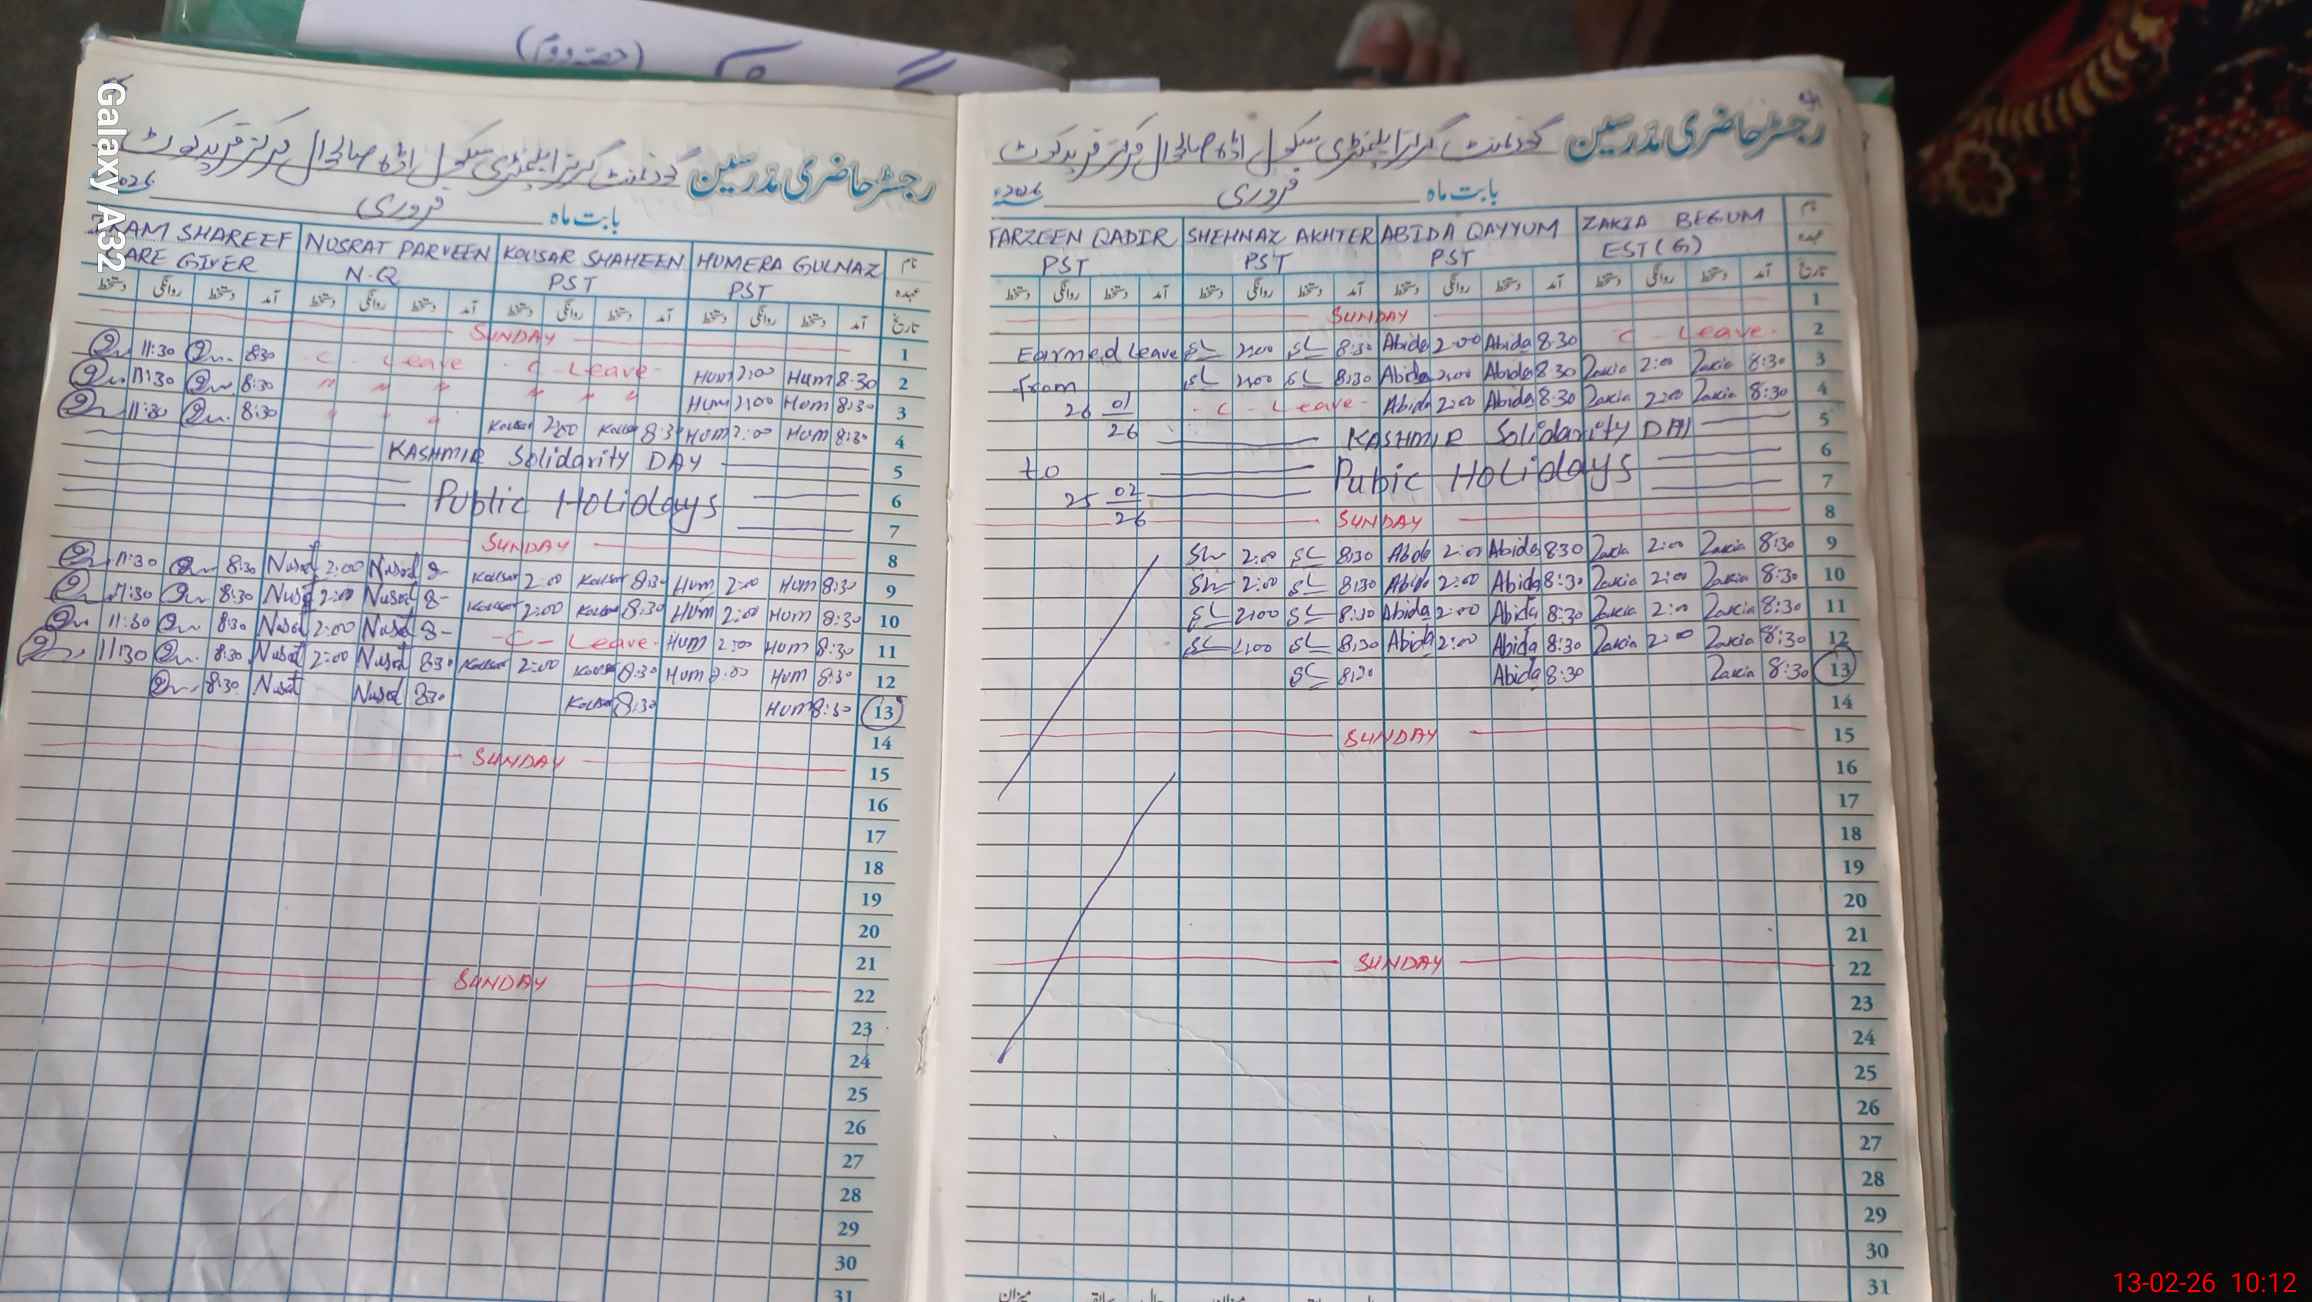 (حصہ دوم)
Galaxy A32
رجسٹر حاضری مدرسین گورنمنٹ گرلز ایلیمنٹری سکول اڈہ صالحوال مرکز فرید کوٹ
بابت ماہ فروری 2026
IRAM SHAREEF NUSRAT PARVEEN KOUSAR SHAHEEN HUMERA GULNAZ نام
CARE GIVER N.Q PST PST عہدہ
دستخط روانگی دستخط آمد دستخط روانگی دستخط آمد دستخط روانگی دستخط آمد دستخط روانگی دستخط آمد تاریخ
SUNDAY 1
11:30 8:30 C - Leave C - Leave Hum 2:00 Hum 8:30 2
11:30 8:30 " " " " " " Hum 2:00 Hum 8:30 3
11:30 8:30 " " " Kousar 2:00 Kousar 8:30 Hum 2:00 Hum 8:30 4
KASHMIR Solidarity DAY 5
Public Holidays 6
7
SUNDAY 8
11:30 8:30 Nusrat 2:00 Nusrat 8- Kousar 2:00 Kousar 8:30 Hum 2:00 Hum 8:30 9
11:30 8:30 Nusrat 2:00 Nusrat 8- Kousar 2:00 Kousar 8:30 Hum 2:00 Hum 8:30 10
11:30 8:30 Nusrat 2:00 Nusrat 8- C - Leave Hum 2:00 Hum 8:30 11
11:30 8:30 Nusrat 2:00 Nusrat 8:30 Kousar 2:00 Kousar 8:30 Hum 2:00 Hum 8:30 12
8:30 Nusrat Nusrat 8:30 Kousar 8:30 Hum 8:30 13
14
SUNDAY 15
16
17
18
19
20
21
SUNDAY 22
23
24
25
26
27
28
29
30
31
رجسٹر حاضری مدرسین گورنمنٹ گرلز ایلیمنٹری سکول اڈہ صالحوال مرکز فرید کوٹ
بابت ماہ فروری 2026ء
FARZEEN QADIR SHEHNAZ AKHTER ABIDA QAYYUM ZAKIA BEGUM نام
PST PST PST EST (G) عہدہ
دستخط روانگی دستخط آمد دستخط روانگی دستخط آمد دستخط روانگی دستخط آمد دستخط روانگی دستخط آمد تاریخ
SUNDAY 1
Earned Leave 2:00 8:30 Abida 2:00 Abida 8:30 C - Leave 2
from 2:00 8:30 Abida 2:00 Abida 8:30 Zakia 2:00 Zakia 8:30 3
26 01 26 C - Leave Abida 2:00 Abida 8:30 Zakia 2:00 Zakia 8:30 4
KASHMIR Solidarity DAY 5
to Pubic Holidays 6
25 02 26 7
SUNDAY 8
2:00 8:30 Abida 2:00 Abida 8:30 Zakia 2:00 Zakia 8:30 9
2:00 8:30 Abida 2:00 Abida 8:30 Zakia 2:00 Zakia 8:30 10
2:00 8:30 Abida 2:00 Abida 8:30 Zakia 2:00 Zakia 8:30 11
2:00 8:30 Abida 2:00 Abida 8:30 Zakia 2:00 Zakia 8:30 12
8:30 Abida 8:30 Zakia 8:30 13
14
SUNDAY 15
16
17
18
19
20
21
SUNDAY 22
23
24
25
26
27
28
29
30
31
میزان
13-02-26 10:12